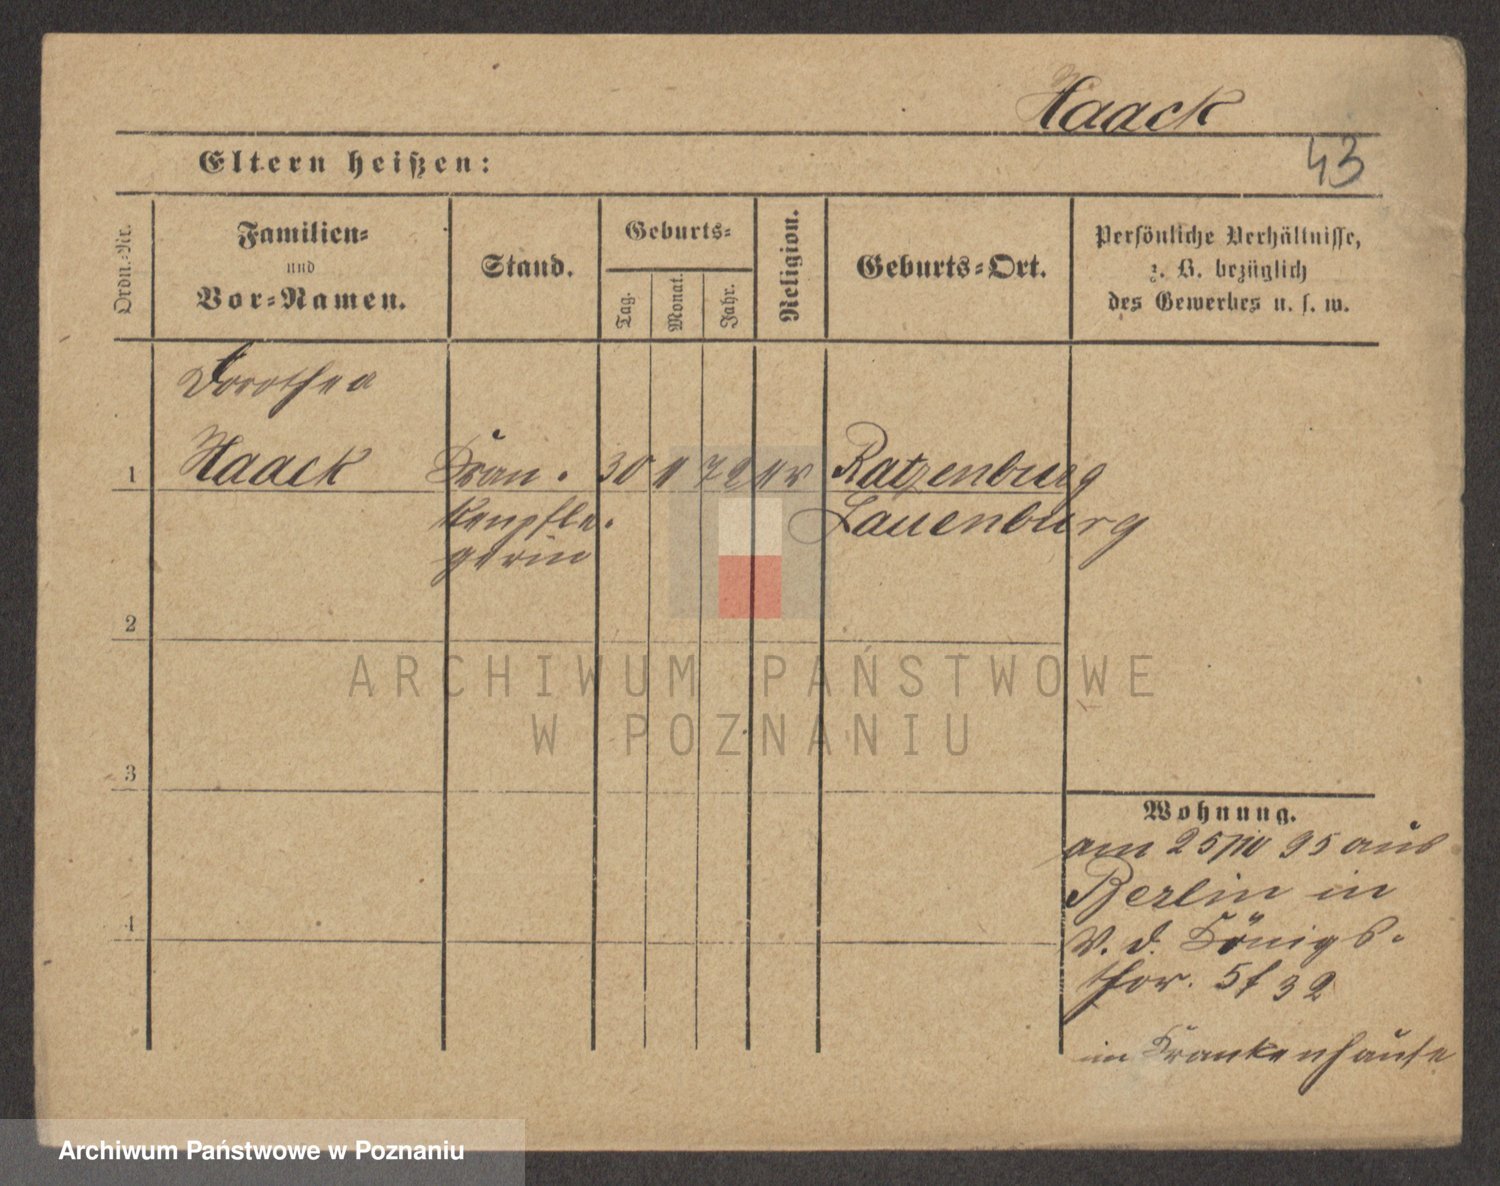 Haack
43
Eltern heißen:
Ordn.-Nr.
Familien-
und
Vor-Namen.
Stand.
Geburts-
Tag.
Monat.
Jahr.
Religion.
Geburts-Ort.
Persönliche Verhältnisse,
z. B. bezüglich
des Gewerbes u. s. w.
Dorothea
1 Haack Kran- 30 72 Ratzenburg
kenpfle- Lauenburg
gerin
2
3
4
Wohnung.
am 25/ 95 aus
Berlin in
V. d. Königs-
thor. 32
im Krankenhause
ARCHIWUM PAŃSTWOWE
W POZNANIU
Archiwum Państwowe w Poznaniu